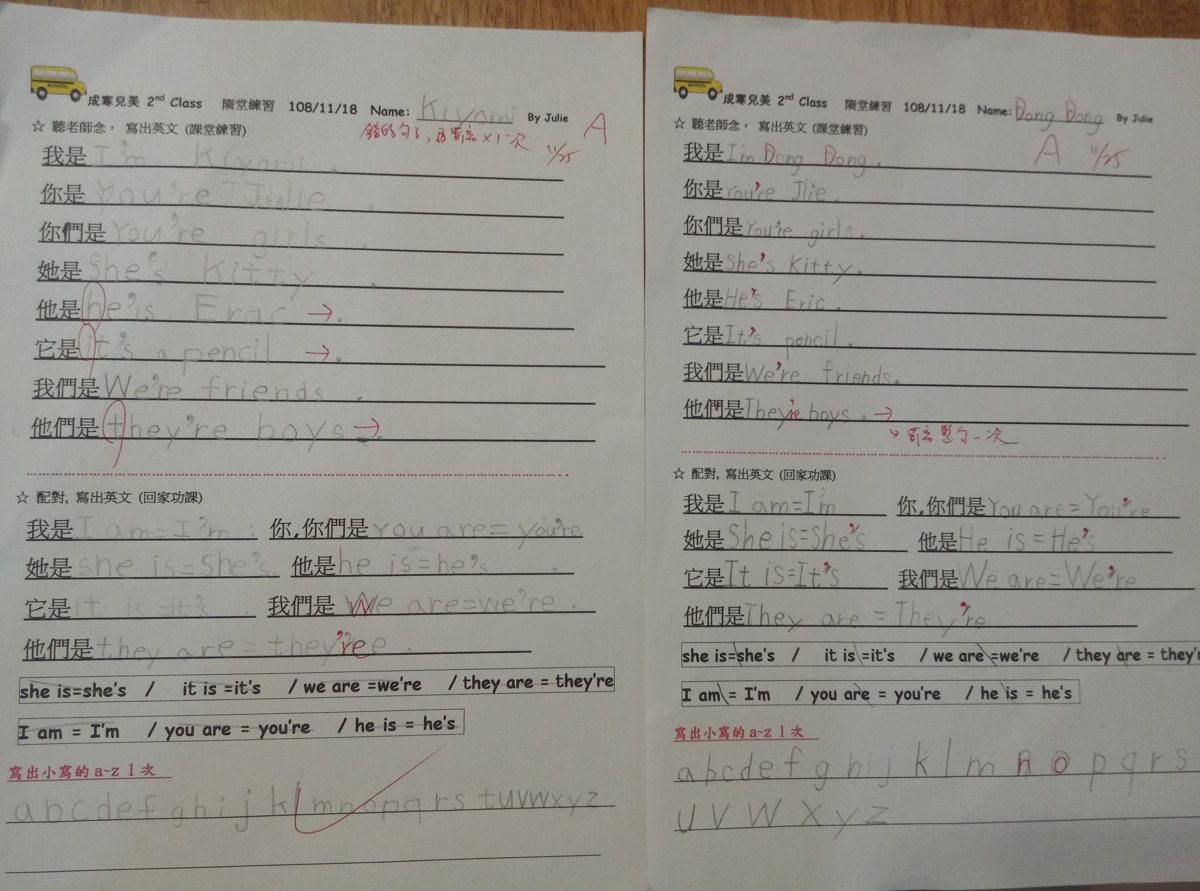 SCHOOL
成寒兒美 2nd Class 隨堂練習 108/11/18 Name: Kiyomi By Julie
A
錯的句子,再罰寫x1次 11/25
☆ 聽老師念, 寫出英文 (課堂練習)
我是 I'm Kiyomi .
你是 You're Julie .
你們是 You're girls .
她是 She's Kitty .
他是 he'is Erac →.
它是 it's a pencil →.
我們是 We're friends .
他們是 they're boys →.
☆ 配對, 寫出英文 (回家功課)
我是 I am=I'm . 你,你們是 you are=you're
她是 she is=She's. 他是 he is=he's .
它是 it is=it's . 我們是 We are=we're .
他們是 they are = they'ree .
she is=she's / it is =it's / we are =we're / they are = they're
I am = I'm / you are = you're / he is = he's
寫出小寫的 a~z 1 次
a b c d e f g h i j k l m n o p q r s t u v w x y z
SCHOOL
成寒兒美 2nd Class 隨堂練習 108/11/18 Name: Dong Dong By Julie
☆ 聽老師念, 寫出英文 (課堂練習)
A 11/25
我是 I'm Dong Dong .
你是 You're Jlie .
你們是 You're girls .
她是 She's Kitty .
他是 He's Eric .
它是 It's pencil .
我們是 We're friends.
他們是 They're boys . →
罰寫整句一次
☆ 配對, 寫出英文 (回家功課)
我是 I am=I'm 你,你們是 You are = You're
她是 She is=She's 他是 He is = He's
它是 It is=It's 我們是 We are=We're
他們是 They are = They're
she is=she's / it is =it's / we are =we're / they are = they'r
I am = I'm / you are = you're / he is = he's
寫出小寫的 a~z 1 次
a b c d e f g h i j k l m n o p q r s
u v w x y z